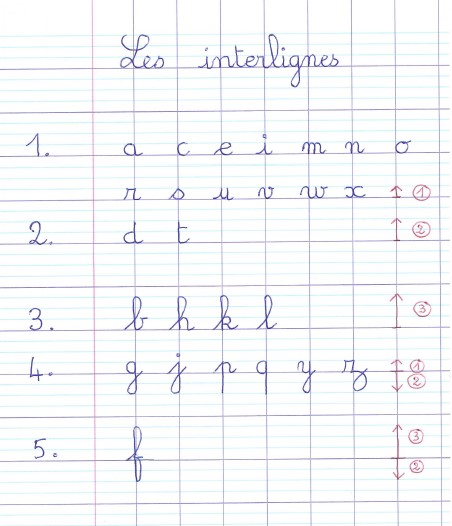 Les interlignes
1. a c e i m n o
r s u v w x ↑ ①
2. d t ↑ ②
3. b h k l ↑ ③
4. g j p q y z ↑ ①
↓ ②
5. f ↑ ③
↓ ②